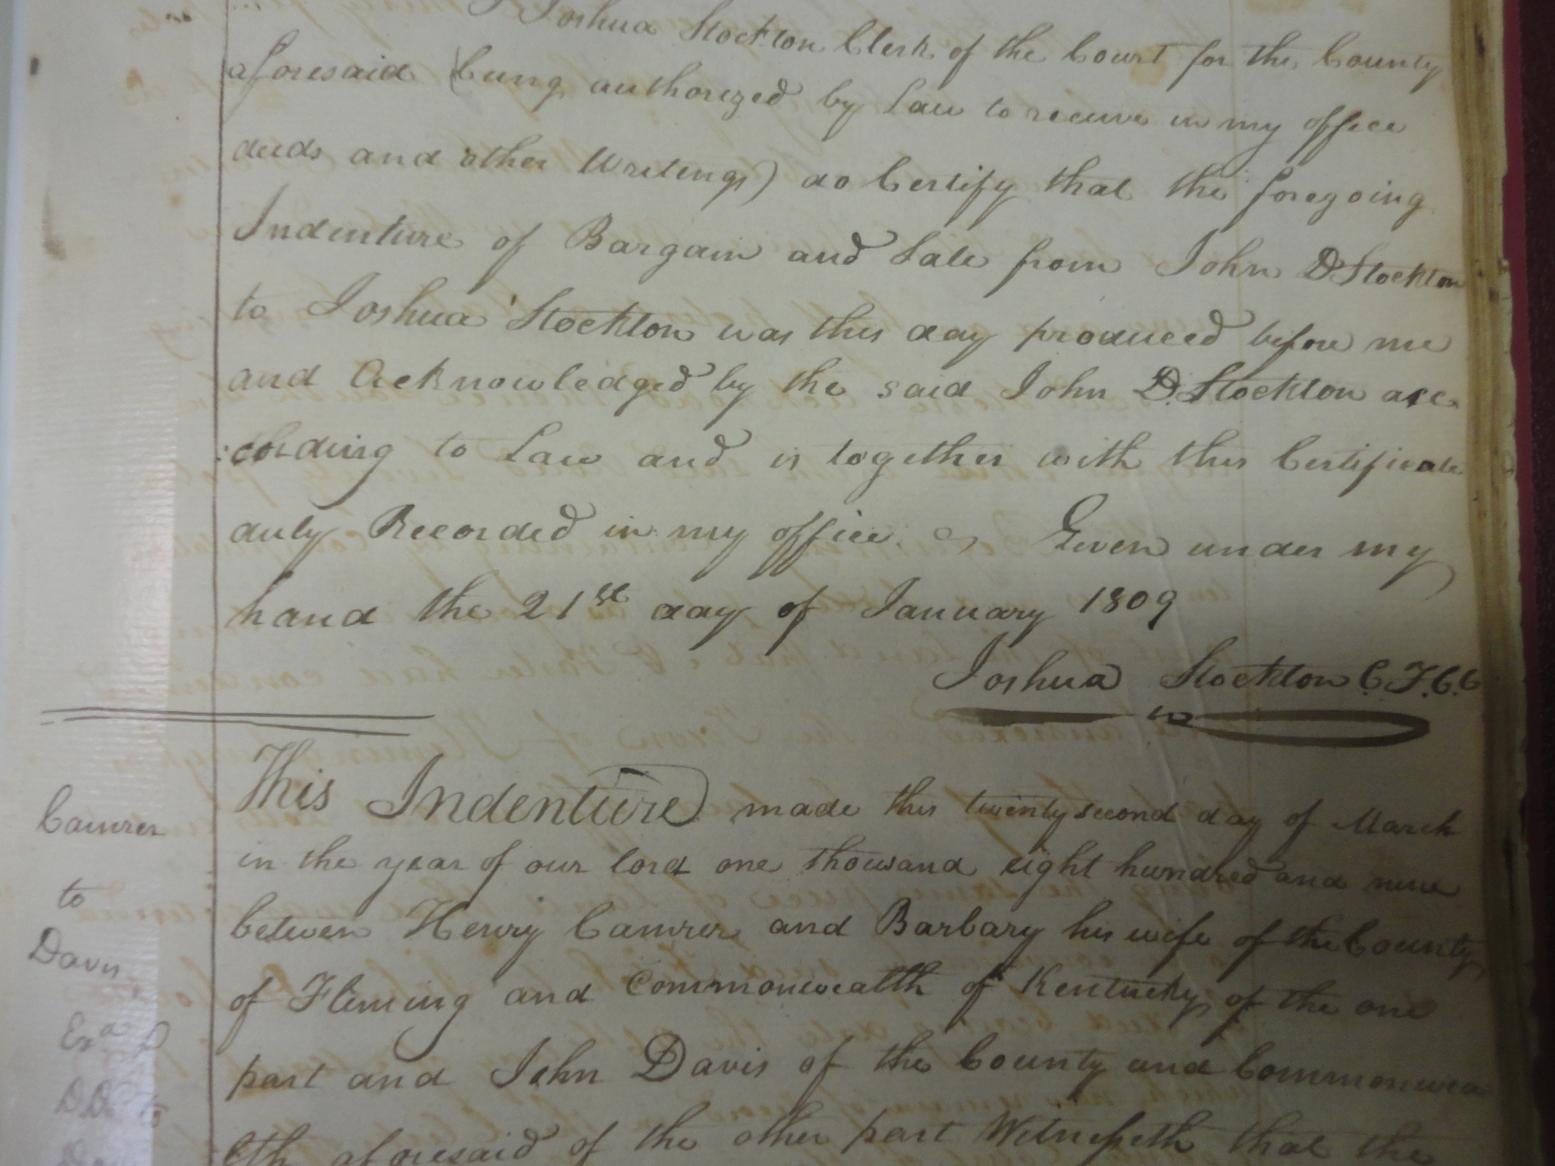 I Joshua Stockton Clerk of the Court for the County
aforesaid (being authorized by Law to receive in my office
deeds and other Writings) do Certify that the foregoing
Indenture of Bargain and Sale from John D Stockton
to Joshua Stockton was this day produced before me
and Acknowledged by the said John D. Stockton acc
:cording to Law and is together with this Certificate
duly Recorded in my office. Given under my
hand the 21st day of January 1809
Joshua Stockton C.F.C.C
This Indenture made this twenty second day of March
in the year of our lord one thousand eight hundred and nine
between Henry Camrer and Barbary his wife of the County
of Fleming and Commonwealth of Kentucky of the one
part and John Davis of the County and Commonwea
lth aforesaid of the other part Witnesseth that the
Camrer
to
Davis
Exa
DD to